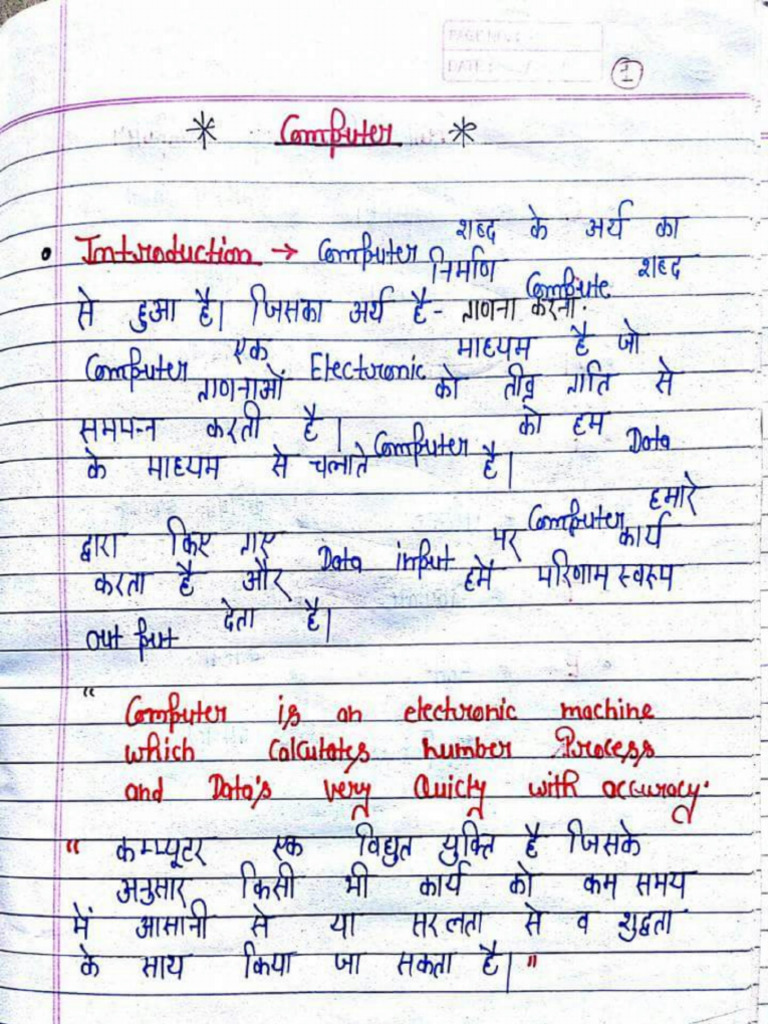 PAGE NO.:
DATE:
1
* Computer *
• Introduction → Computer शब्द के अर्थ का
निर्माण Compute शब्द
से हुआ है। जिसका अर्थ है- गणना करना.
Computer एक Electronic माध्यम है जो
गणनाओं को तीव्र गति से
समपन्न करती है। Computer को हम Data
के माध्यम से चलाते है।
Computer हमारे
द्वारा किए गए Data input पर कार्य
करता है और हमें परिणाम स्वरूप
out put देता है।
"Computer is an electronic machine
which Calculates number Process
and Data's very Quicty with accuracy.
" कम्प्यूटर एक विद्युत युक्ति है जिसके
अनुसार किसी भी कार्य को कम समय
में आसानी से या सरलता से व शुद्धता
के साथ किया जा सकता है। "